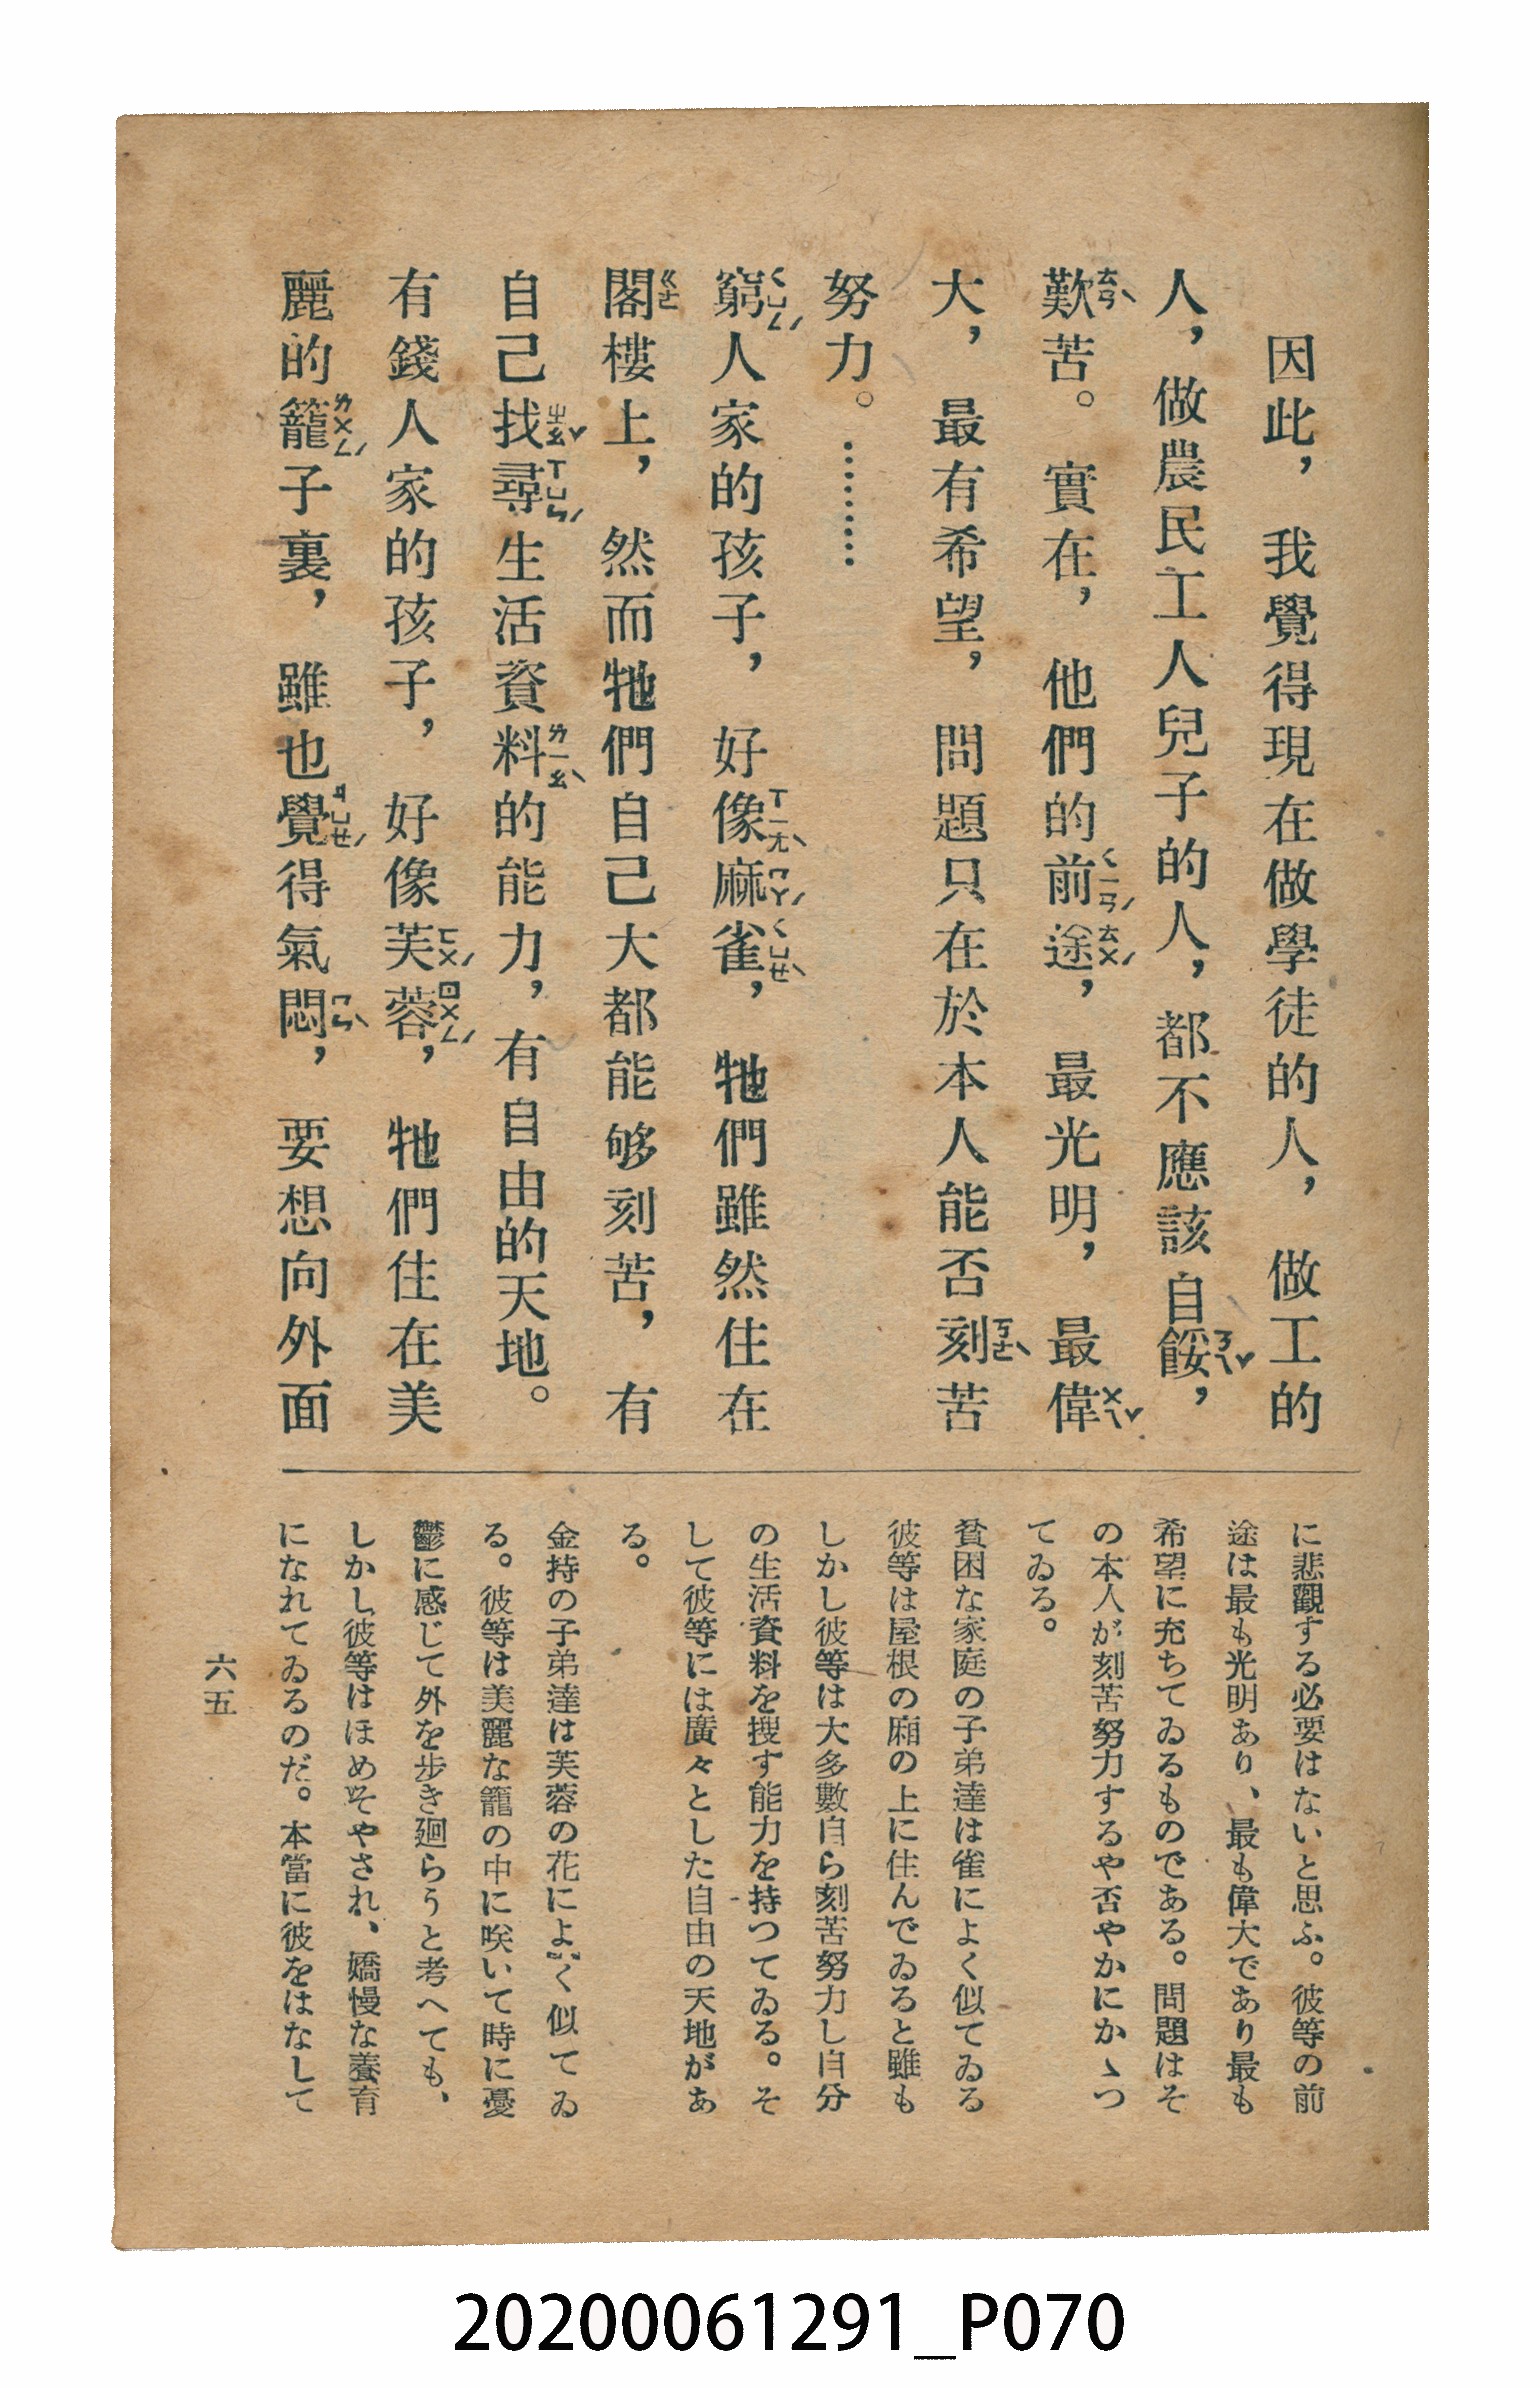 因此，我覺得現在做學徒的人，做工的
人，做農民工人兒子的人，都不應該自餒，
歎苦。實在，他們的前途，最光明，最偉
大，最有希望，問題只在於本人能否刻苦
努力。………
窮人家的孩子，好像麻雀，牠們雖然住在
閣樓上，然而牠們自己大都能够刻苦，有
自己找尋生活資料的能力，有自由的天地。
有錢人家的孩子，好像芙蓉，牠們住在美
麗的籠子裏，雖也覺得氣悶，要想向外面
ㄋㄟˇ
ㄊㄢˋ
ㄑㄧㄢˊ
ㄊㄨˊ
ㄨㄟˇ
ㄎㄜˋ
ㄑㄩㄥˊ
ㄒㄧㄤˋ
ㄇㄚˊ
ㄑㄩㄝˋ
ㄍㄜ
ㄓㄠˇ
ㄒㄩㄣˊ
ㄌㄧㄠˋ
ㄈㄨˊ
ㄖㄨㄥˊ
ㄌㄨㄥˊ
ㄐㄩㄝˊ
ㄇㄣˋ
に悲觀する必要はないと思ふ。彼等の前
途は最も光明あり、最も偉大であり最も
希望に充ちてゐるものである。問題はそ
の本人が刻苦努力するや否やかにかゝつ
てゐる。
貧困な家庭の子弟達は雀によく似てゐる
彼等は屋根の廂の上に住んでゐると雖も
しかし彼等は大多數自ら刻苦努力し自分
の生活資料を搜す能力を持つてゐる。そ
して彼等には廣々とした自由の天地があ
る。
金持の子弟達は芙蓉の花によく似てゐ
る。彼等は美麗な籠の中に咲いて時に憂
鬱に感じて外を步き廻らうと考へても、
しかし彼等はほめそやされ、嬌慢な養育
になれてゐるのだ。本當に彼をはなして
六五
20200061291_P070